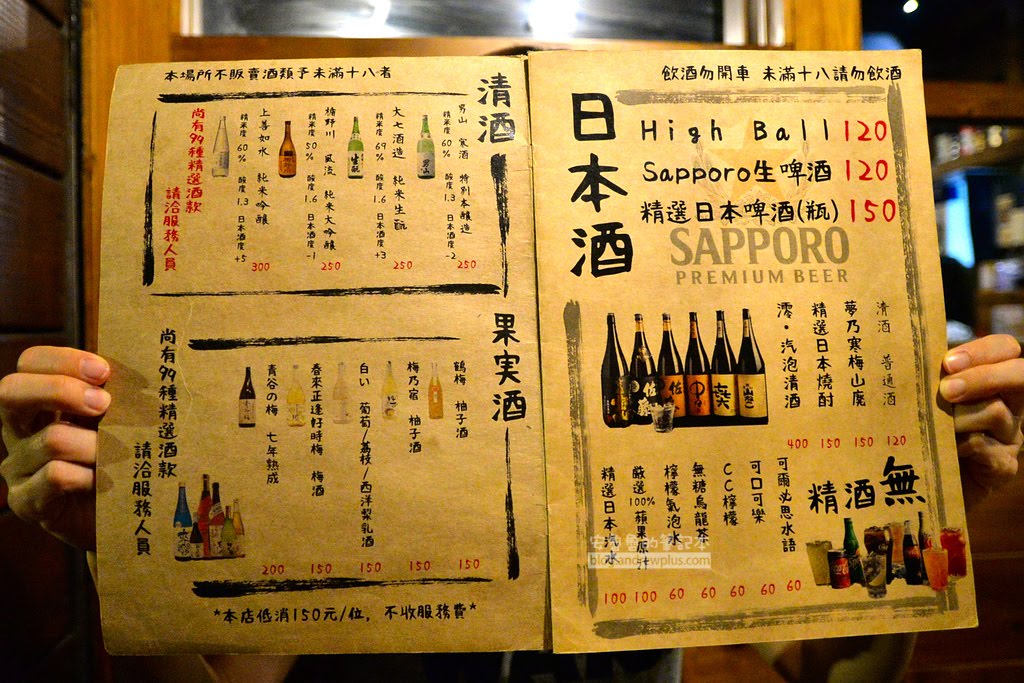 本場所不販賣酒類予未滿十八者
清酒
男山 寒酒 特別本醸造
精米度 60% 酸度 1.3 日本酒度 -2
250
大七酒造 純米生酛
精米度 69% 酸度 1.6 日本酒度 +3
250
楯野川 風流 純米大吟醸
精米度 50% 酸度 1.6 日本酒度 -1
250
上善如水 純米吟醸
精米度 60% 酸度 1.3 日本酒度 +5
300
尚有99種精選酒款
請洽服務人員
果実酒
鶴梅 柚子酒
150
梅乃宿 柚子酒
150
白い 葡萄/荔枝/西洋梨乳酒
150
春來正逢好時梅 梅酒
150
青谷の梅 七年熟成
200
尚有99種精選酒款
請洽服務人員
*本店低消150元/位, 不收服務費*
飲酒勿開車 未滿十八請勿飲酒
日本酒
High Ball 120
Sapporo生啤酒 120
精選日本啤酒(瓶) 150
SAPPORO
PREMIUM BEER
清酒 普通酒
120
夢乃寒梅山廃
150
精選日本燒酎
150
澪・汽泡清酒
400
無酒精
可爾必思水語
60
可口可樂
60
CC檸檬
60
無糖烏龍茶
60
檸檬氣泡水
60
嚴選100%蘋果原汁
100
精選日本汽水
100
blog.andrewplus.com